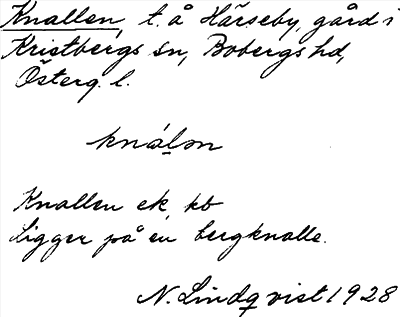 Knallen, t. å Härseby, gård i
Kristbergs sn, Bobergs hd,
Österg. l.
knálən
Knallen ek, kb
Ligger på en bergknalle.
N. Lindqvist 1928